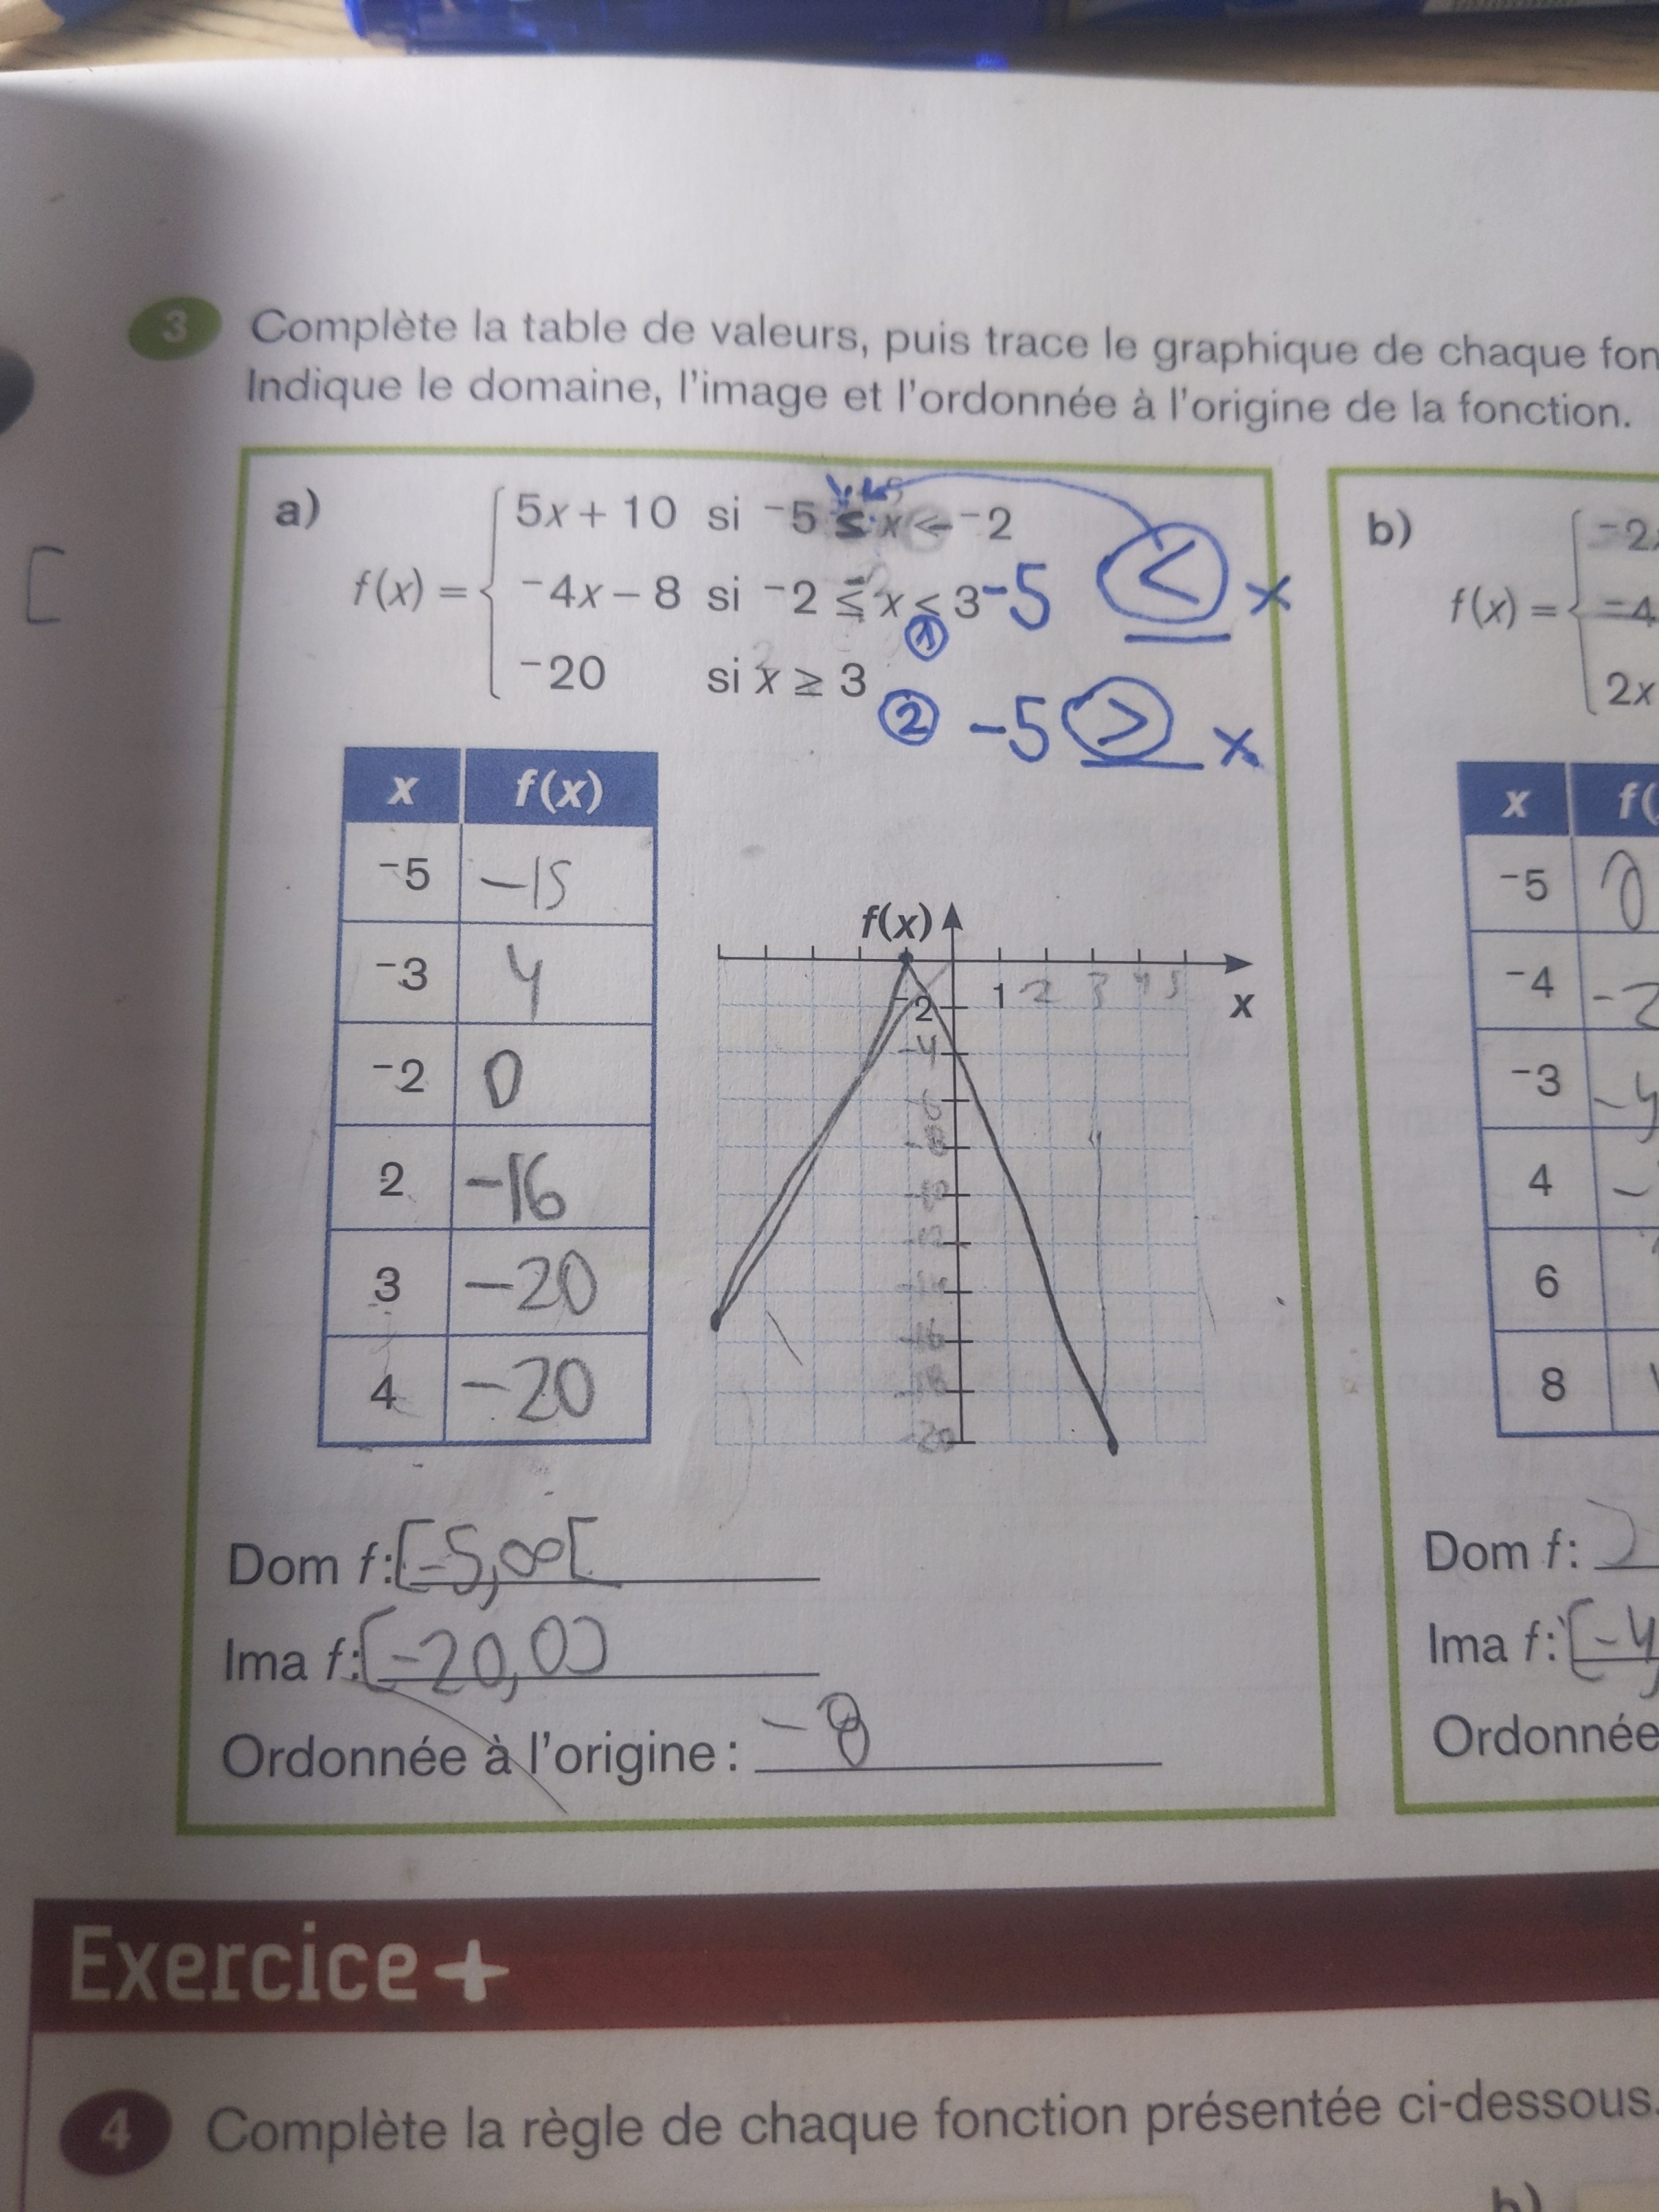 3 Complète la table de valeurs, puis trace le graphique de chaque fon
Indique le domaine, l'image et l'ordonnée à l'origine de la fonction.
a)
f(x) =
5x + 10 si ⁻5 ≤ x < ⁻2
⁻4x – 8 si ⁻2 ≤ x < 3
⁻20 si x ≥ 3
-5 < x
1
2 -5 > x
x f(x)
⁻5 -15
⁻3 4
⁻2 0
2 -16
3 -20
4 -20
f(x)
x
1 2 3 4 5
⁻2
-4
-6
-8
-10
-16
-18
-20
Dom f: [-5,∞[
Ima f: [-20,0]
Ordonnée à l'origine : -8
b)
f(x) =
⁻2
⁻4
2x
x f(
⁻5 0
⁻4 -2
⁻3 -4
4 -
6
8
Dom f:
Ima f: [-4
Ordonnée
Exercice+
4 Complète la règle de chaque fonction présentée ci-dessous.
b)